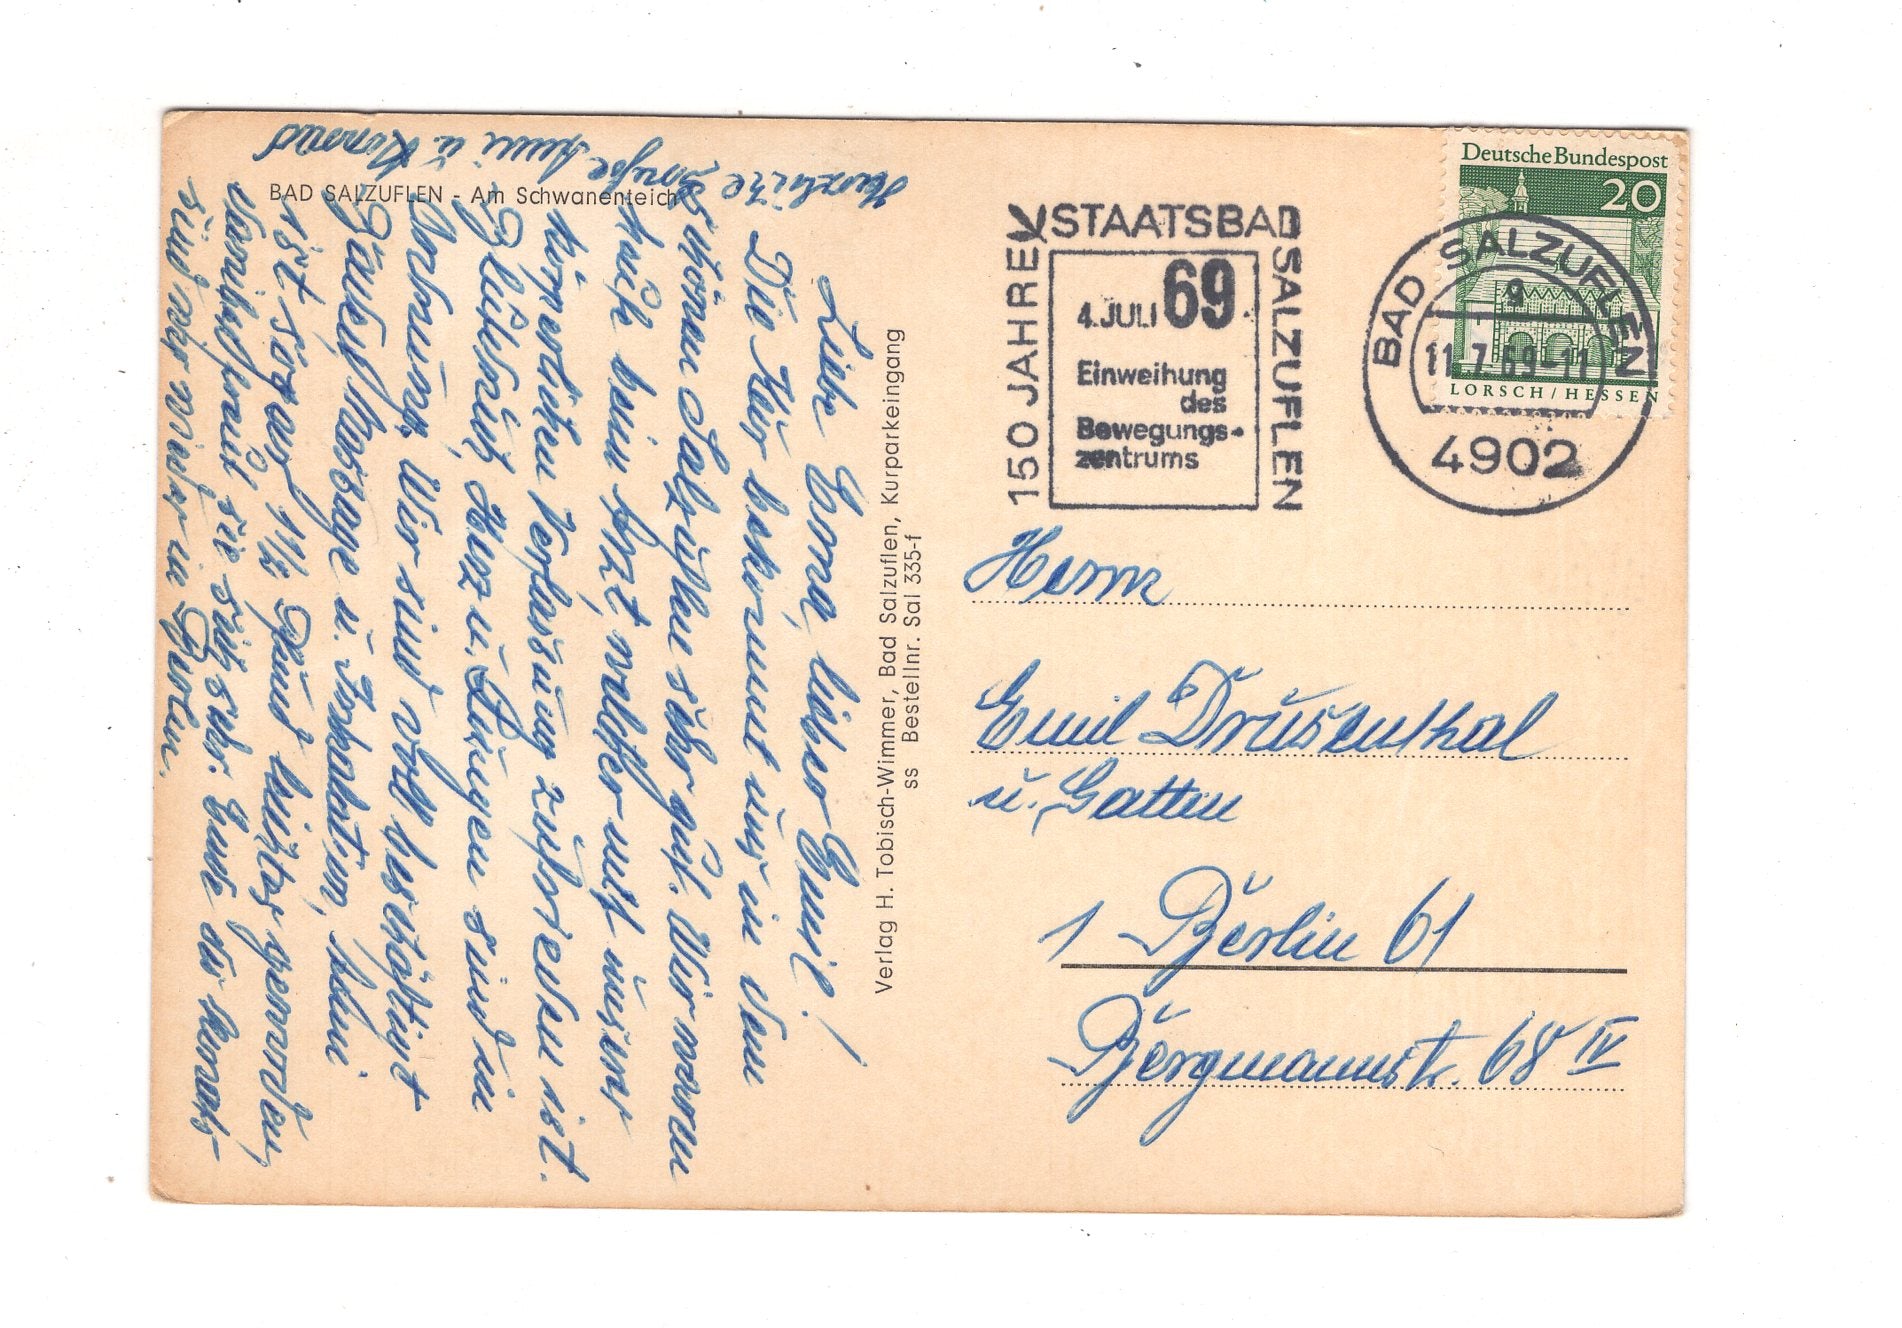 BAD SALZUFLEN - Am Schwanenteich
Liebe Erna, lieber Emil!
Die Kur bekommt uns in dem
schönen Salzuflen sehr gut. Wir waren
auch beim Arzt, welcher mit unserer
körperlichen Verfassung zufrieden ist.
Blutdruck, Herz u. Lungen sind in
Ordnung. Wir sind voll beschäftigt
Bäder, Massage u. Inhalation,
ist sogar 1½ Pfund leichter geworden,
damit freut sie sich sehr. Ende des Monats
sind wir wieder in Berlin.
Herzliche Grüße u. Konrad
Verlag H. Tobisch-Wimmer, Bad Salzuflen, Kurparkeingang
ss Bestellnr. Sal 335-f
150 JAHRE STAATSBAD SALZUFLEN
4. JULI 69
Einweihung
des
Bewegungs-
zentrums
Deutsche Bundespost
20
LORSCH/HESSEN
BAD SALZUFLEN
g
11.7.69-11
4902
Herrn
Emil Drusenthal
u. Gattin
1 Berlin 61
Bergmannstr. 68 IV